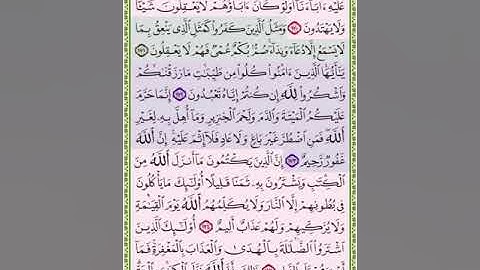 عَلَيْهِ ءَابَآءَنَآ أَوَلَوْ كَانَ ءَابَآؤُهُمْ لَا يَعْقِلُونَ شَيْـًٔا
وَلَا يَهْتَدُونَ ١٧٠ وَمَثَلُ ٱلَّذِينَ كَفَرُوا۟ كَمَثَلِ ٱلَّذِى يَنْعِقُ بِمَا
لَا يَسْمَعُ إِلَّا دُعَآءً وَنِدَآءً صُمٌّۢ بُكْمٌ عُمْىٌ فَهُمْ لَا يَعْقِلُونَ ١٧١
يَـٰٓأَيُّهَا ٱلَّذِينَ ءَامَنُوا۟ كُلُوا۟ مِن طَيِّبَـٰتِ مَا رَزَقْنَـٰكُمْ
وَٱشْكُرُوا۟ لِلَّهِ إِن كُنتُمْ إِيَّاهُ تَعْبُدُونَ ١٧٢ إِنَّمَا حَرَّمَ
عَلَيْكُمُ ٱلْمَيْتَةَ وَٱلدَّمَ وَلَحْمَ ٱلْخِنزِيرِ وَمَآ أُهِلَّ بِهِۦ لِغَيْرِ
ٱللَّهِ فَمَنِ ٱضْطُرَّ غَيْرَ بَاغٍ وَلَا عَادٍ فَلَآ إِثْمَ عَلَيْهِ إِنَّ ٱللَّهَ
غَفُورٌ رَّحِيمٌ ١٧٣ إِنَّ ٱلَّذِينَ يَكْتُمُونَ مَآ أَنزَلَ ٱللَّهُ مِنَ
ٱلْكِتَـٰبِ وَيَشْتَرُونَ بِهِۦ ثَمَنًا قَلِيلًا أُو۟لَـٰٓئِكَ مَا يَأْكُلُونَ
فِى بُطُونِهِمْ إِلَّا ٱلنَّارَ وَلَا يُكَلِّمُهُمُ ٱللَّهُ يَوْمَ ٱلْقِيَـٰمَةِ
وَلَا يُزَكِّيهِمْ وَلَهُمْ عَذَابٌ أَلِيمٌ ١٧٤ أُو۟لَـٰٓئِكَ ٱلَّذِينَ
ٱشْتَرَوُا۟ ٱلضَّلَـٰلَةَ بِٱلْهُدَىٰ وَٱلْعَذَابَ بِٱلْمَغْفِرَةِ فَمَآ